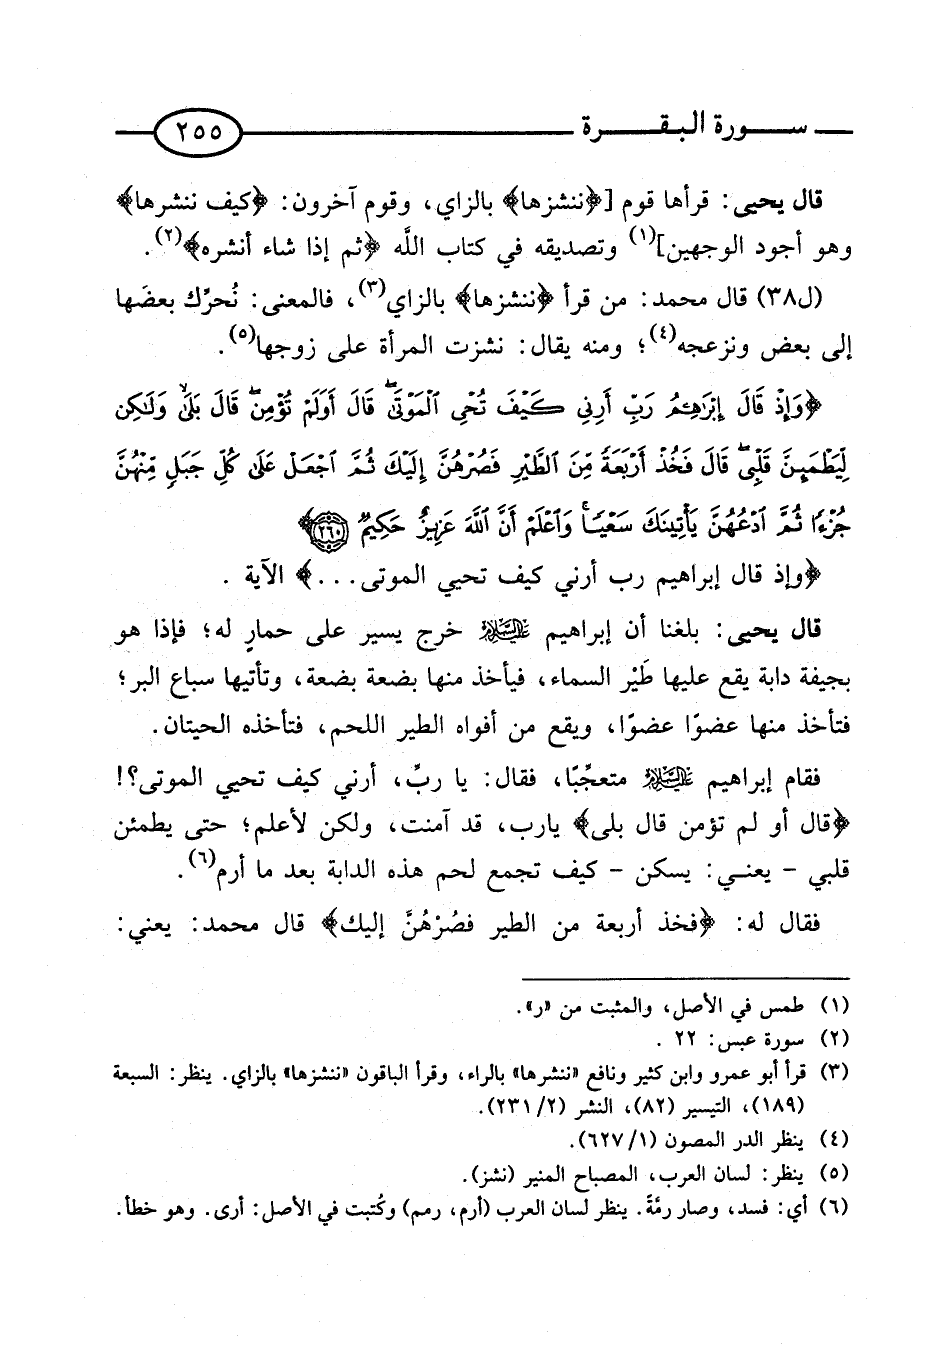 سورة البقرة ٢٥٥
قال يحيى: قرأها قوم [﴿ننشزها﴾ بالزاي، وقوم آخرون: ﴿كيف ننشرها﴾
وهو أجود الوجهين](١) وتصديقه في كتاب اللَّه ﴿ثم إذا شاء أنشره﴾(٢).
(ل٣٨) قال محمد: من قرأ ﴿ننشزها﴾ بالزاي(٣)، فالمعنى: نُحرِّك بعضَها
إلى بعض ونزعجه(٤)؛ ومنه يقال: نشزت المرأة على زوجها(٥).
﴿وَإِذْ قَالَ إِبْرَاهِـۧمُ رَبِّ أَرِنِي كَيْفَ تُحْىِ الْمَوْتَىٰۖ قَالَ أَوَلَمْ تُؤْمِنۖ قَالَ بَلَىٰۙ وَلَٰكِن
لِّيَطْمَئِنَّ قَلْبِىۖ قَالَ فَخُذْ أَرْبَعَةً مِّنَ الطَّيْرِ فَصُرْهُنَّ إِلَيْكَ ثُمَّ اجْعَلْ عَلَىٰ كُلِّ جَبَلٍ مِّنْهُنَّ
جُزْءًا ثُمَّ ادْعُهُنَّ يَأْتِينَكَ سَعْيًاۚ وَاعْلَمْ أَنَّ اللَّهَ عَزِيزٌ حَكِيمٌ ٢٦٠﴾
﴿وإذ قال إبراهيم رب أرني كيف تحيي الموتى...﴾ الآية .
قال يحيى: بلغنا أن إبراهيم عَلَيْهِ السَّلَام خرج يسير على حمارٍ له؛ فإذا هو
بجيفة دابة يقع عليها طَيْر السماء، فيأخذ منها بضعة بضعة، وتأتيها سباع البر؛
فتأخذ منها عضوًا عضوًا، ويقع من أفواه الطير اللحم، فتأخذه الحيتان.
فقام إبراهيم عَلَيْهِ السَّلَام متعجِّبًا، فقال: يا ربِّ، أرني كيف تحيي الموتى؟!
﴿قال أو لم تؤمن قال بلى﴾ يارب، قد آمنت، ولكن لأعلم؛ حتى يطمئن
قلبي – يعني: يسكن – كيف تجمع لحم هذه الدابة بعد ما أرم(٦).
فقال له: ﴿فخذ أربعة من الطير فصُرْهُنَّ إليك﴾ قال محمد: يعني:
(١) طمس في الأصل، والمثبت من «ر».
(٢) سورة عبس: ٢٢ .
(٣) قرأ أبو عمرو وابن كثير ونافع «ننشرها» بالراء، وقرأ الباقون «ننشزها» بالزاي. ينظر: السبعة
(١٨٩)، التيسير (٨٢)، النشر (٢/٢٣١).
(٤) ينظر الدر المصون (١/٦٢٧).
(٥) ينظر: لسان العرب، المصباح المنير (نشز).
(٦) أي: فسد، وصار رمَّةً. ينظر لسان العرب (أرم، رمم) وكُتبت في الأصل: أرى. وهو خطأ.